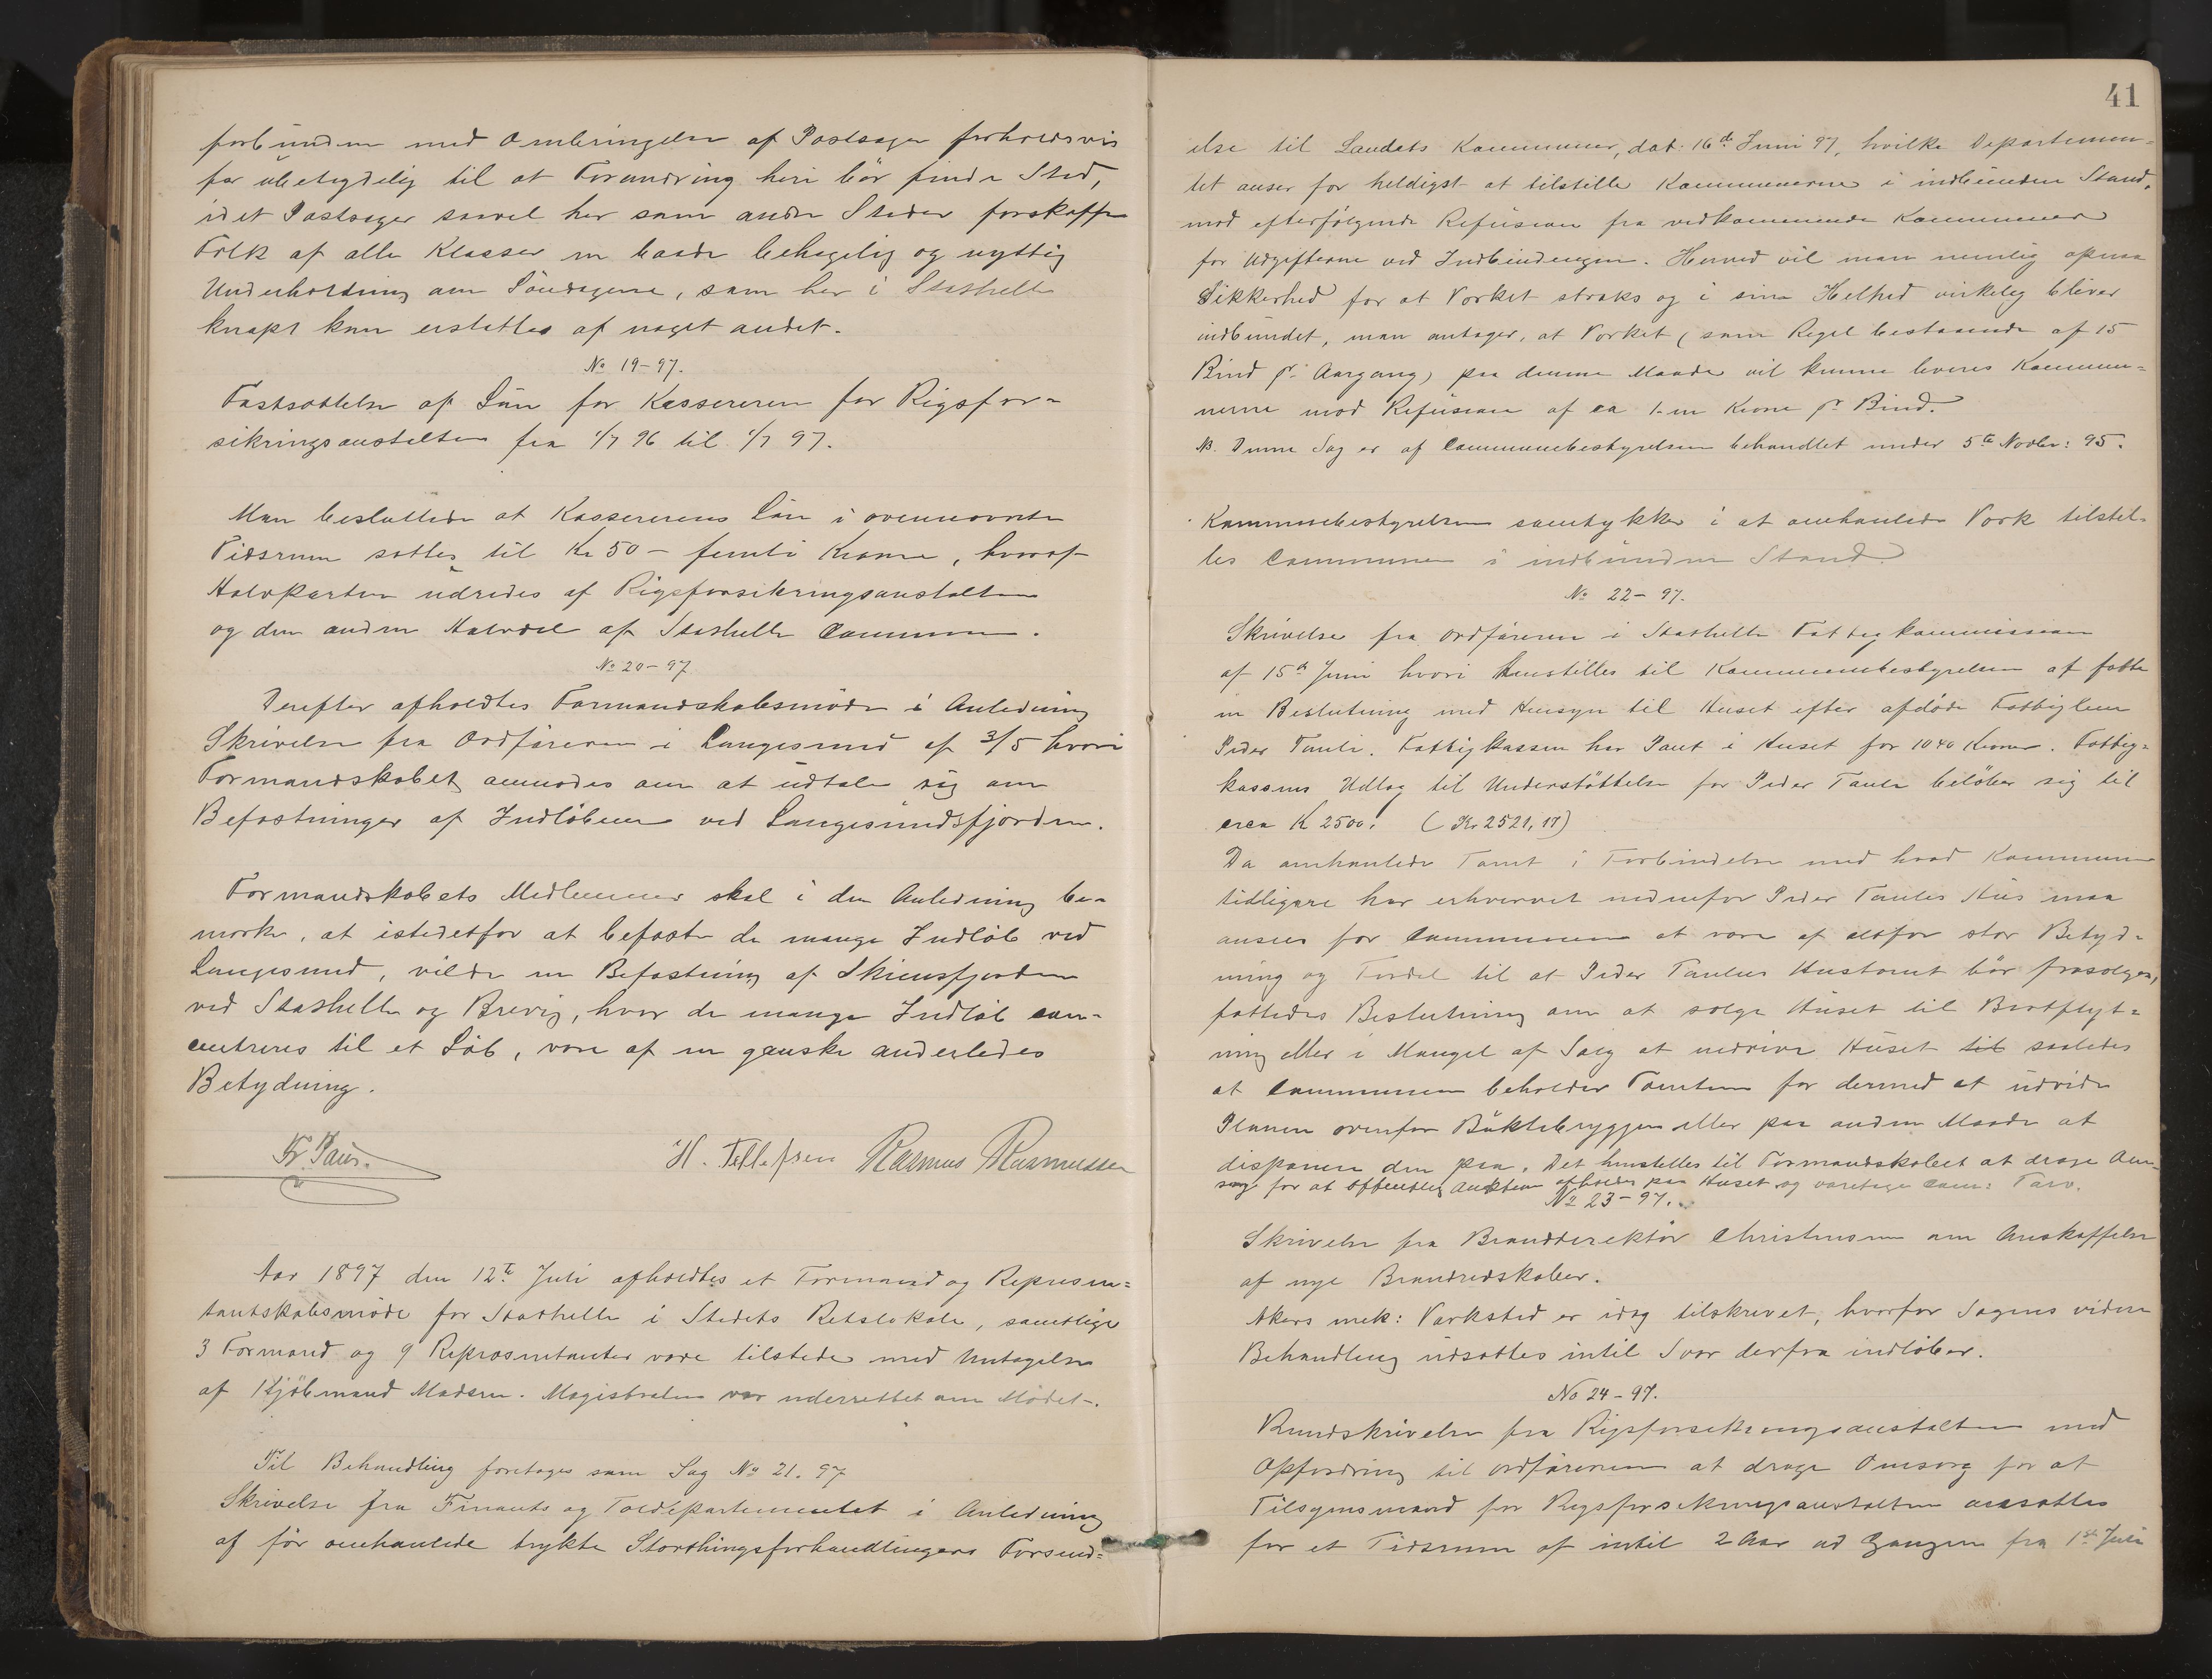 forbunden med Ombringelsen af Postsager forholdsvis
for ubetydelig til at Forandring heri bör finde Sted,
idet Postsager saavel her som andre Steder forskaffe
Folk af alle Klasser en baade behagelig og nyttig
Underholdning om Söndagene, som her i Stathelle
knapt kan erstattes af noget andet.
No 19-97.
Fastsættelse af Lön for Kassereren for Rigsfor-
sikringsanstalten fra 1/7 96 til 1/7 97.
Man besluttede at Kassererens Lön i ovennævnte
Tidsrum sættes til Kr 50 - femti Kroner, hvoraf
Halvparten udredes af Rigsforsikringsanstalten
og den anden Halvdel af Stathelle Commune.
No 20-97
Derefter afholdtes Formandskabsmöde i Anledning
Skrivelse fra Ordföreren i Langesund af 3/5 hvori
Formandskabet anmodes om at udtale sig om
Befæstninger af Indlöbene ved Langesundsfjorden.
Formandskabets Medlemmer skal i den Anledning be-
mærke, at istedetfor at befæste de mange Indlöb ved
Langesund, vilde en Befæstning af Skiensfjorden
ved Stathelle og Brevig, hvor de mange Indlöb con-
centreres til et Löb, være af en ganske anderledes
Betydning.
Fr. Paus. H. Tellefsen Rasmus Rasmussen
Aar 1897 den 12te Juli afholdtes et Formand og Repræsen-
tantskabsmöde for Stathelle i Stedets Retslokale, samtlige
3 Formænd og 9 Repræsentanter vare tilstede med Undtagelse
af Kjöbmand Madsen. Magistraten var underrettet om Mödet.
Til Behandling foretoges som Sag No 21. 97
Skrivelse fra Finants og Tolddepartementet i Anledning
af för omhandlede trykte Storthingsforhandlingers Forsend-
41
else til Landets Kommuner, dat. 16de Juni 97, hvilke Departemen-
tet anser for heldigst at tilstille Kommunerne i indbunden Stand,
mod efterfölgende Refusion fra vedkommende Kommuner
for Udgifterne ved Indbindingen. Herved vil man nemlig opnaa
Sikkerhed for at Verket straks og i sin Helhed virkelig bliver
indbundet, man antager, at Verket (som Regel bestaaende af 15
Bind pr. Aargang) paa denne Maade vil kunne leveres Kommu-
nerne mod Refusion af ca 1-en Krone pr Bind.
NB. Denne Sag er af Communebestyrelsen behandlet under 5te Novbr: 95.
Kommunebestyrelsen samtykker i at omhandlede Værk tilstil-
les Communen i indbunden Stand.
No 22-97.
Skrivelse fra Ordföreren i Stathelle Fattigkommission
af 15de Juni hvori henstilles til Kommunebestyrelsen at fatte
en Beslutning med Hensyn til Huset efter afdöde Fattiglem
Peder Taule. Fattigkassen har Pant i Huset for 1040 Kroner. Fattig-
kassens Udlæg til Understöttelse for Peder Taule belöber sig til
circa K 2500. (Kr. 2521,17)
Da omhandlede Tomt i Forbindelse med hvad Kommunen
tidligere har erhvervet nedenfor Peder Taules Hus maa
ansees for Communen at være af altfor stor Betyd-
ning og Fordel til at Peder Taules Hustomt bör frasælges,
fattedes Beslutning om at sælge Huset til Bortflyt-
ning eller i Mangel af Salg at nedrive Huset til saaledes
at Communen beholder Tomten for dermed at udvide
Planen ovenfor Buktebryggen eller paa anden Maade at
disponere den paa. Det henstilles til Formandskabet at drage Om-
sorg for at offentlig Auktion afholdes paa Huset og varetage Com: Tarv.
No 23-97.
Skrivelse fra Branddirektör Christensen om Anskaffelse
af nye Brandredskaber.
Akers mek: Værksted er idag tilskrevet, hvorfor Sagens videre
Behandling udsættes intil Svar derfra indlöber.
No 24-97.
Rundskrivelse fra Rigsforsikringsanstalten med
Opfordring til Ordföreren at drage Omsorg for at
Tilsynsmænd for Rigsforsikringsanstalten ansættes
for et Tidsrum af intil 2 Aar ad Gangen fra 1ste Juli